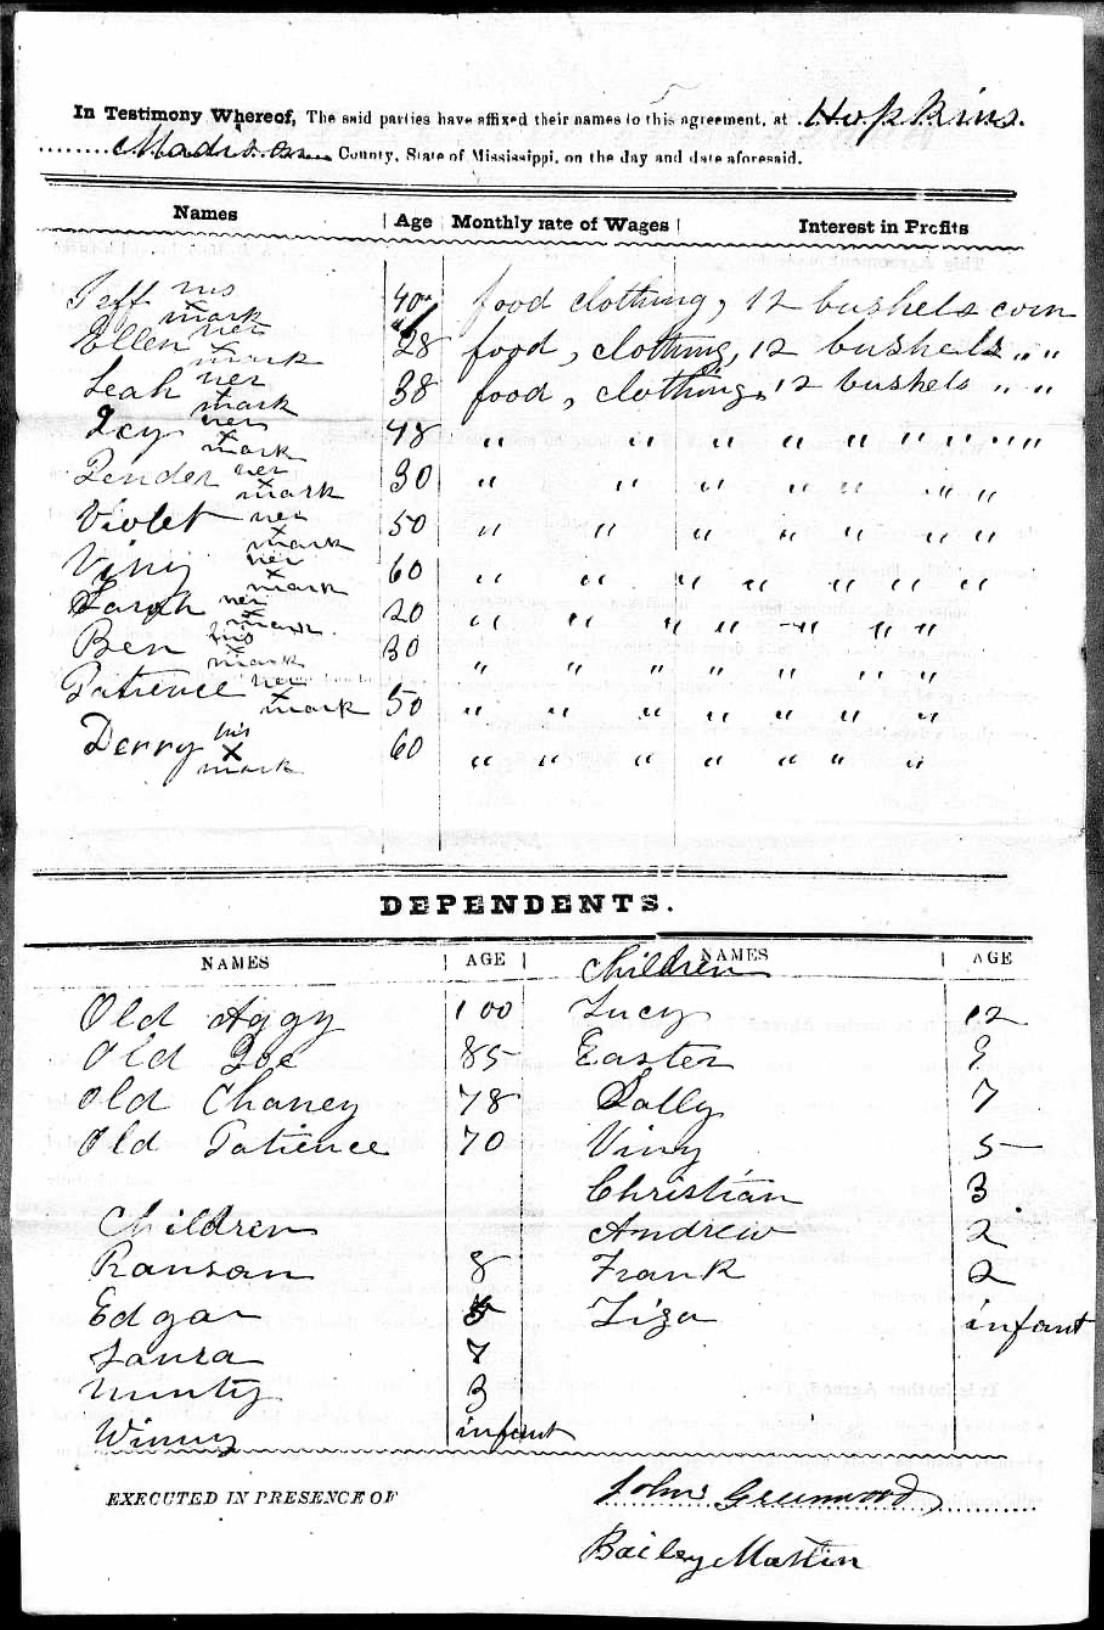 In Testimony Whereof, The said parties have affixed their names to this agreement, at Hopkins.
Madison County, State of Mississippi, on the day and date aforesaid.
Names Age Monthly rate of Wages Interest in Profits
Jeff his x mark 40 food clothing, 12 bushels corn
Ellen her x mark 28 food, clothing, 12 bushels " "
Leah her x mark 38 food, clothing, 12 bushels " "
her x mark 48 " " " " " " " " "
her x mark 30 " " " " " " "
Violet her x mark 50 " " " " " " "
Viny her x mark 60 " " " " " " " "
Sarah her x mark 20 " " " " " " "
Ben his x mark 30 " " " " " " "
Patience her x mark 50 " " " " " " "
Derry his x mark 60 " " " " " " "
DEPENDENTS.
NAMES AGE NAMES AGE
Children
Old Aggy 100 Lucy 12
Old Joe 85 Easter 9
Old Chaney 78 Sally 7
Old Patience 70 Viny 5
Christian 3
Children Andrew 2
Ransom 8 Frank 2
Edgar 5 Liza infant
Laura 7
3
Winny infant
EXECUTED IN PRESENCE OF John Greenwood
Bailey Martin